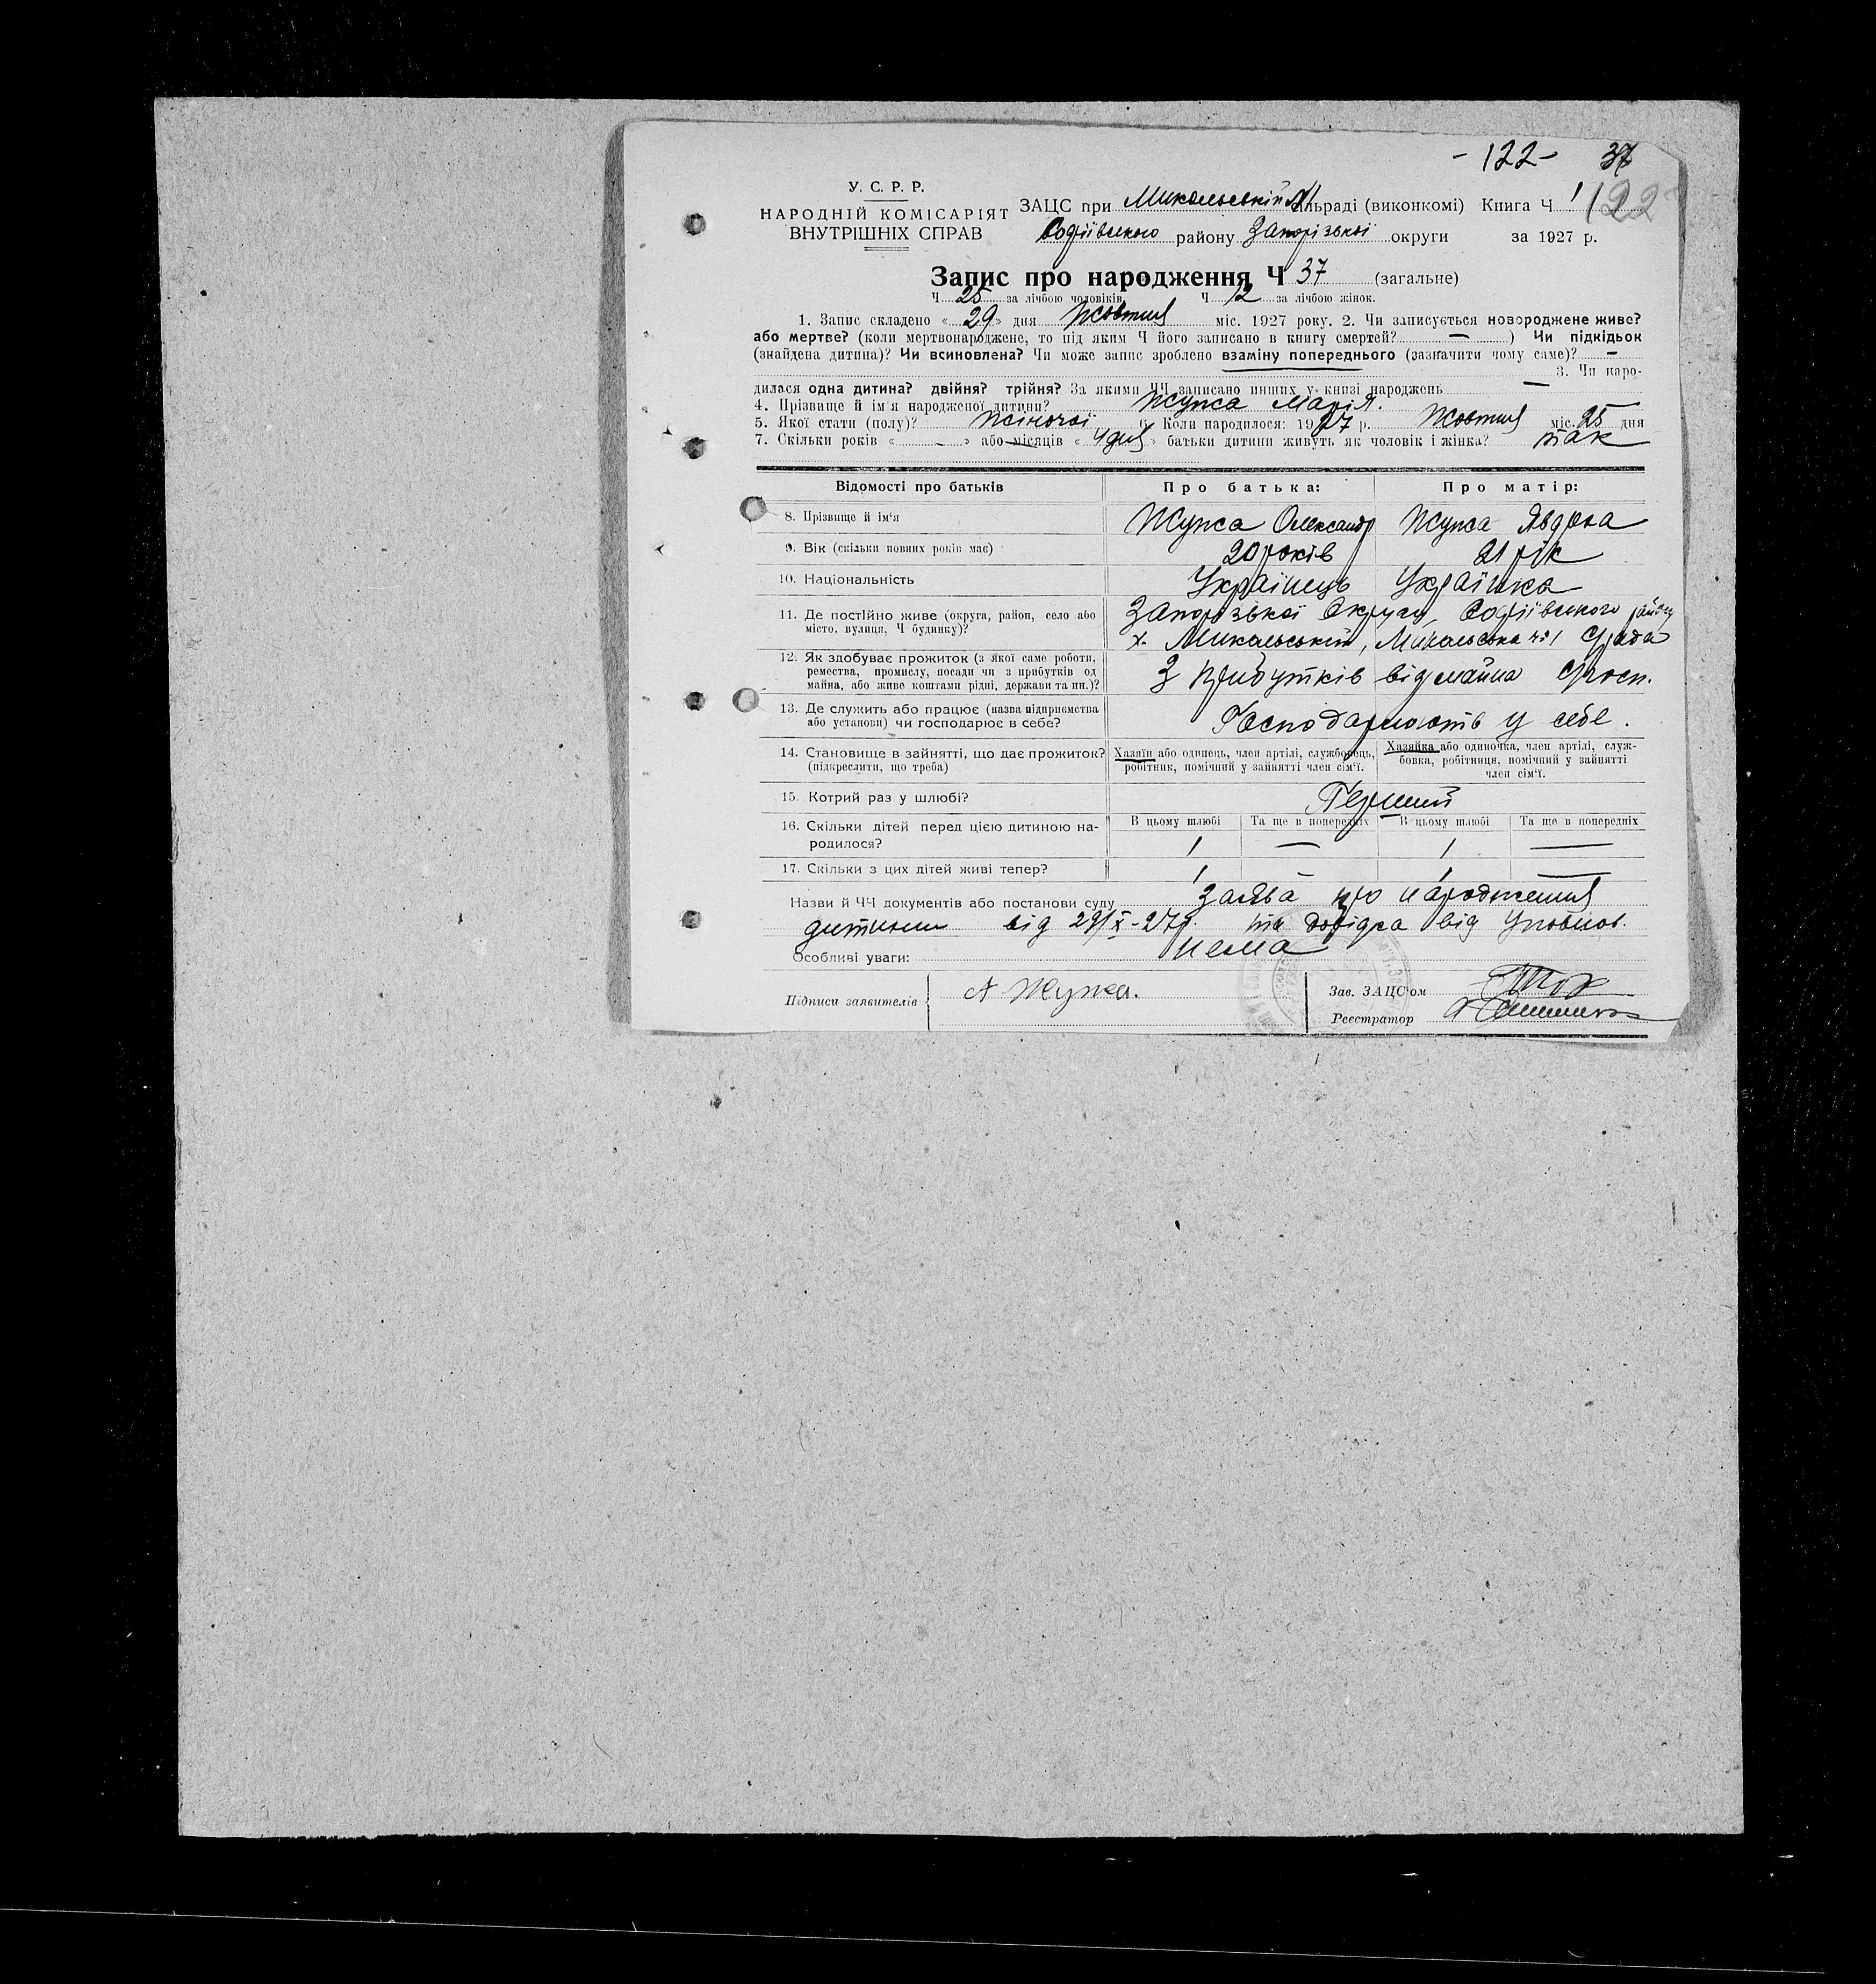 -122- 37
122
У. С. Р. Р.
НАРОДНІЙ КОМІСАРІЯТ
ВНУТРІШНІХ СПРАВ
ЗАЦС при Микольській сільраді (виконкомі) Книга Ч 1
Софіївського району Запорізької округи за 1927 р.
Запис про народження Ч 37 (загальне)
Ч 25 за лічбою чоловіків Ч 12 за лічбою жінок.
1. Запис складено «29» дня Жовтня міс. 1927 року. 2. Чи записується новороджене живе?
або мертве? (коли мертвонароджене, то під яким Ч його записано в книгу смертей? — ) Чи підкідьок
(знайдена дитина)? Чи всиновлена? Чи може запис зроблено взаміну попереднього (зазначити чому саме)? —
3. Чи наро-
дилася одна дитина? двійня? трійня? За якими ЧЧ записано инших у книзі народжень —
4. Прізвище й ім'я народженої дитини? Жупка Марія.
5. Якої стати (полу)? Жіночої 6. Коли народилося: 1927 р. Жовтня міс. 25 дня
7. Скільки років « - » або місяців « 4 дня » батьки дитини живуть як чоловік і жінка? так
Відомості про батьків Про батька: Про матір:
8. Прізвище й ім'я Жупка Олександр Жупка Явдоха
9. Вік (скільки повних років має) 20 років 21 рік
10. Національність Українець Українка
11. Де постійно живе (округа, район, село або Запорізької Округи, Софіївського району
місто, вулиця, Ч будинку)? х. Микольський, Микольська ч. 1 С/рада
12. Як здобуває прожиток (з якої саме роботи,
ремества, промислу, посади чи з прибутків од З прибутків від майна С/госп.
майна, або живе коштами рідні, держави та ин.)?
13. Де служить або працює (назва підприємства
або установи) чи господарює в себе? Господарюють у себе.
14. Становище в зайнятті, що дає прожиток? Хазяїн або одинець, член артілі, службовець, Хазяйка або одиночка, член артілі, служ-
(підкреслити, що треба) робітник, помічний у зайнятті член сім'ї. бовка, робітниця, помічний у зайнятті
член сім'ї.
15. Котрий раз у шлюбі? Перший
16. Скільки дітей перед цією дитиною на- В цьому шлюбі Та ще в попередніх В цьому шлюбі Та ще в попередніх
родилося? 1 — 1 —
17. Скільки з цих дітей живі тепер? 1 1 —
Назви й ЧЧ документів або постанови суду заява про народження
дитини від 29/X-27р. та довідка від Уповнов.
Особливі уваги: нема
Підписи заявителів А Жупка.
Зав. ЗАЦС'ом
Реєстратор